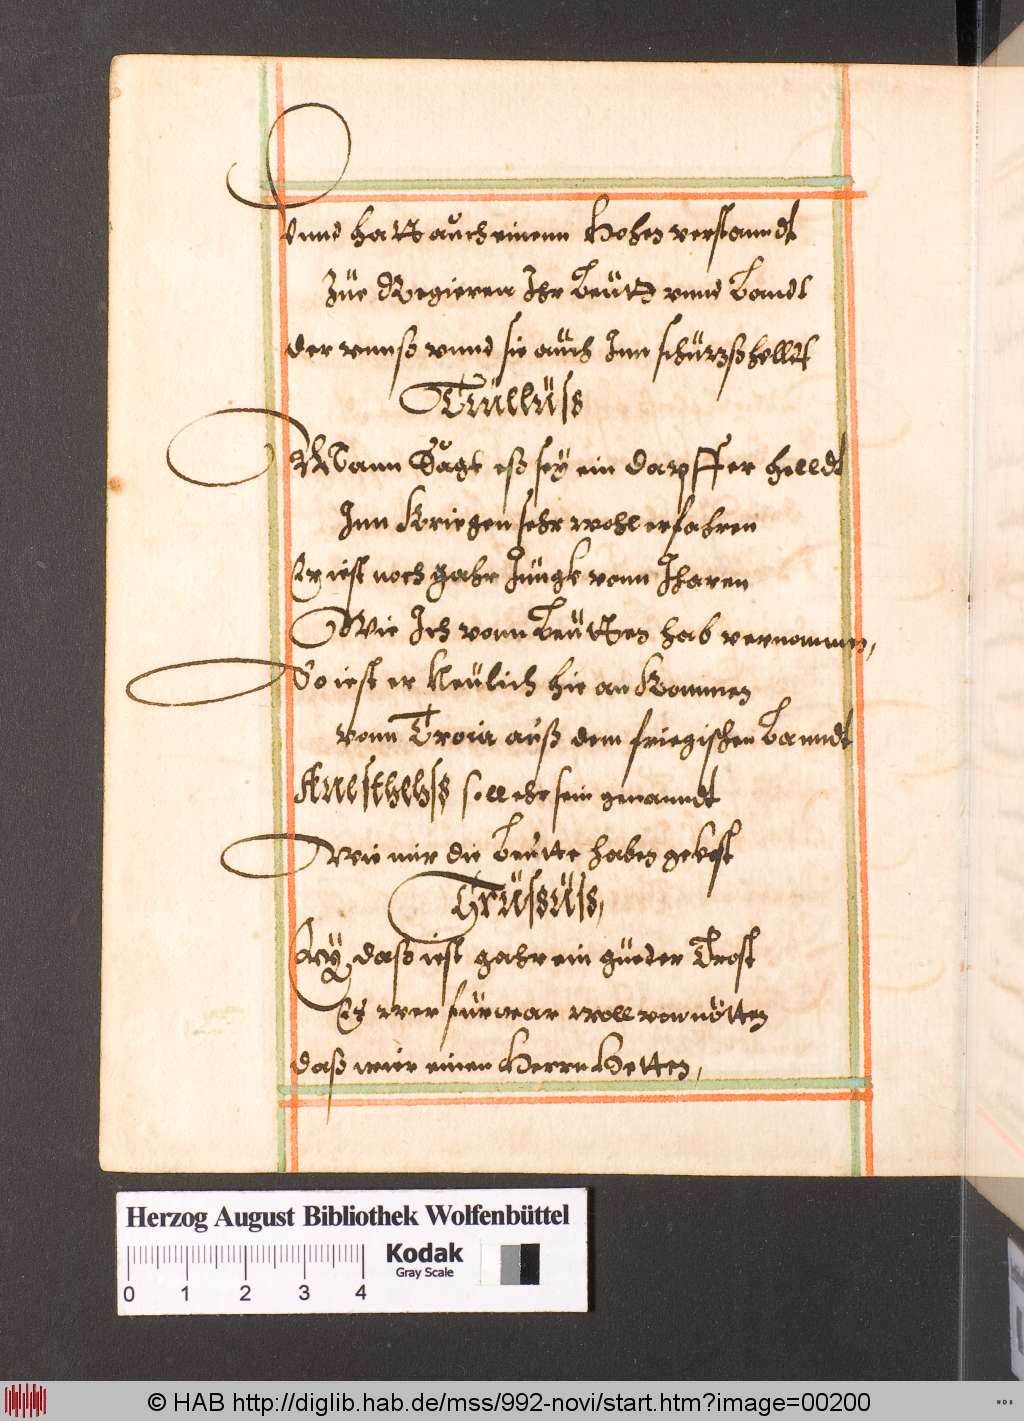 Unnd hatt auch einenn Hohen verstanndt
Züe Regieren Ihr Leütt unnd Landt
der unnß unnd sie auch Inn schützß hellt
Trülluss
Mann Sagt eß sey ein dapffer helldt
Inn Kriegen sehr wohl erfahren
Er iest noch gahr Jüngk vonn Iharen
Wie Ich vonn Leütten hab vernommen,
So iest er Neülich hie an Kommen
vonn Troia auß dem friegischen Lanndt
soll ehr sein genanndt
Wie mir die Leütte haben
Crüsüss,
Ey daß iest gahr ein güeter Trost
Es wer fürwar woll von nötten
daß wier einen Herrn Hetten,
Herzog August Bibliothek Wolfenbüttel
Kodak
Gray Scale
0 1 2 3 4
© HAB http://diglib.hab.de/mss/992-novi/start.htm?image=00200